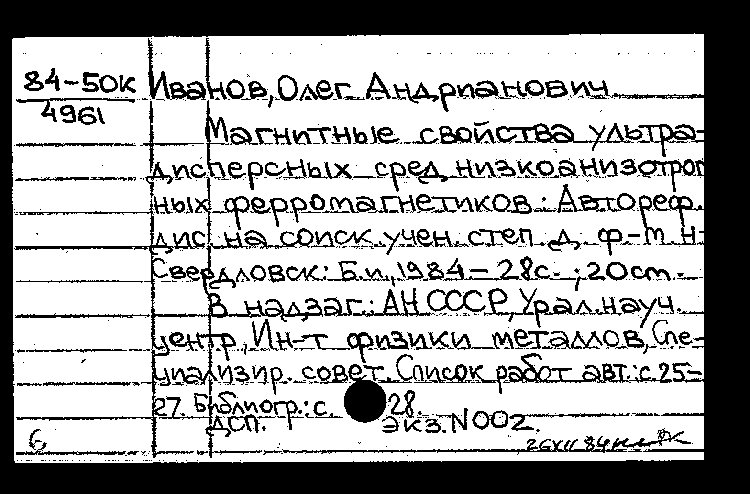 84-50К Иванов, Олег Андрианович.
4961
Магнитные свойства ультра-
дисперсных сред низкоанизотроп
ных ферромагнетиков: Автореф.
дис. на соиск. учен. степ. д. ф-м н-
Свердловск: Б.и., 1984 - 28с. ; 20см.
В надзаг.: АН СССР, Урал. науч.
центр, Ин-т физики металлов, Спе-
циализир. совет. Список работ авт.: с. 25-
27. Библиогр.: с. 28.
ДСП. экз. N002.
6 26XII 84